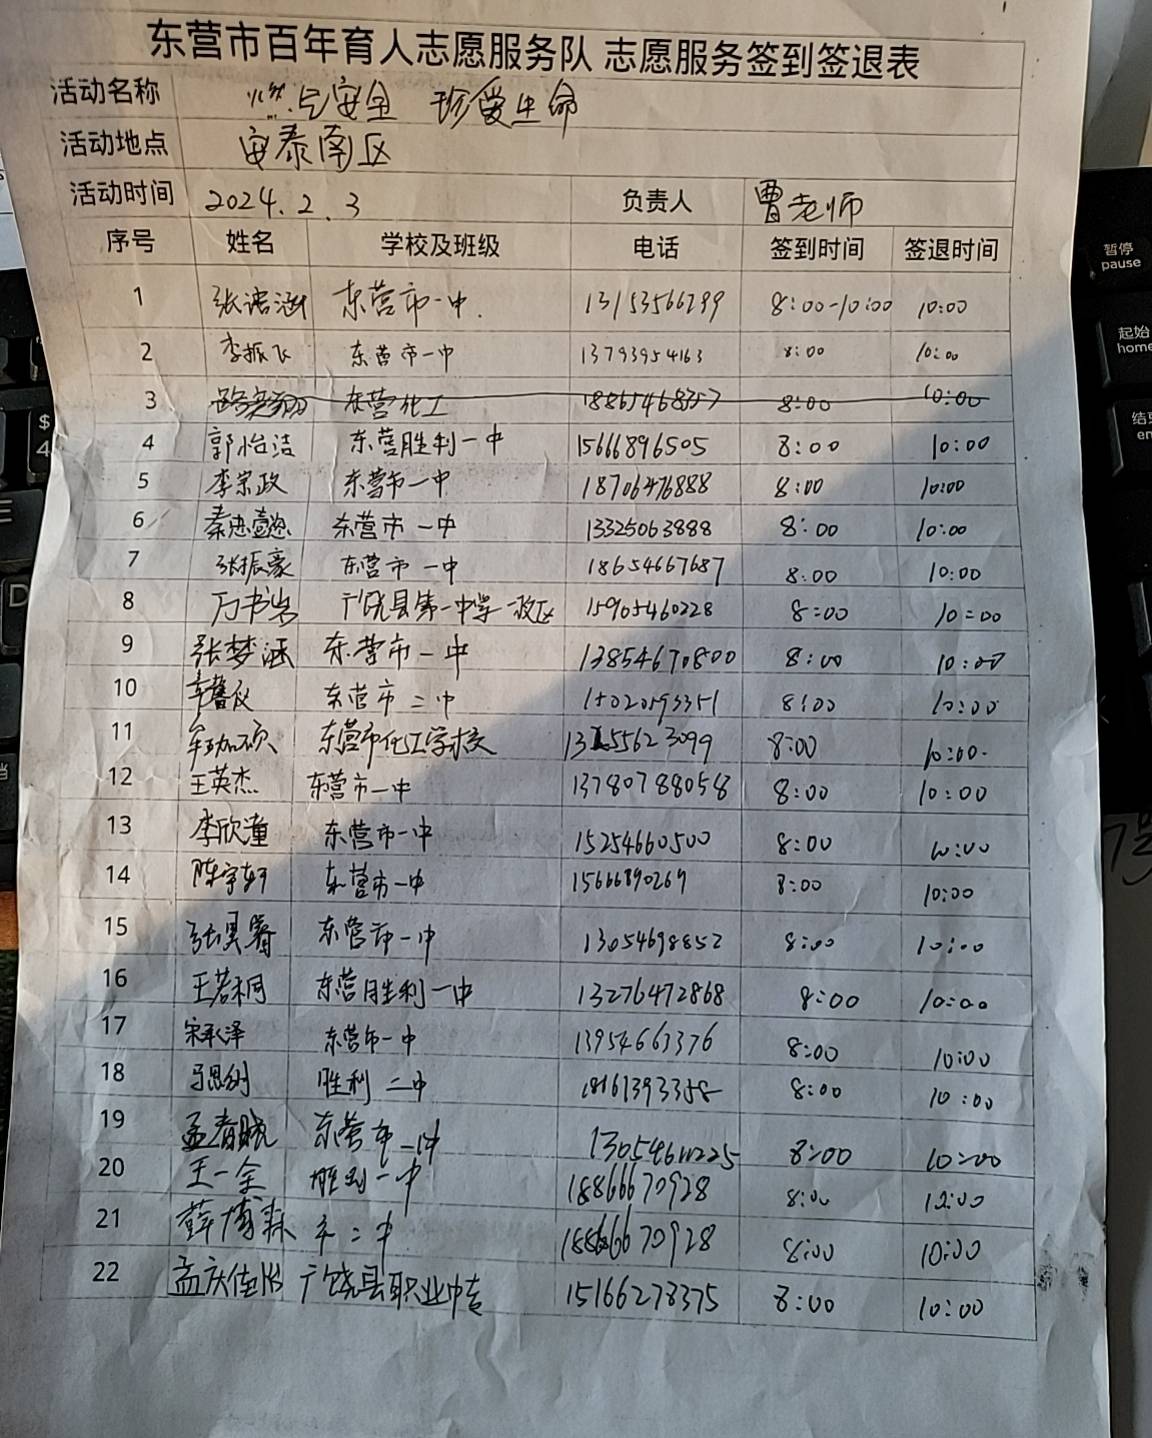 东营市百年育人志愿服务队 志愿服务签到签退表
活动名称 燃气安全 珍爱生命
活动地点 安泰南区
活动时间 2024.2.3 负责人 曹老师
序号 姓名 学校及班级 电话 签到时间 签退时间
1 张诺涵 东营市一中. 13153566299 8:00-10:00 10:00
2 李振飞 东营市一中 13793954163 8:00 10:00
3 东营化工 18865468357 8:00 10:00
4 郭怡洁 东营胜利一中 15666896505 8:00 10:00
5 李宗政 东营市一中 18706476888 8:00 10:00
6 东营市一中 13325063888 8:00 10:00
7 张振豪 东营市一中 18654667687 8:00 10:00
8 万书岩 广饶县第一中学一校区 15905460228 8:00 10:00
9 张梦涵 东营市一中 13854670800 8:00 10:00
10 东营市二中 8:00 10:00
11 东营市化工学校 8:00 10:00.
12 王英杰 东营市一中 13780788058 8:00 10:00
13 李欣潼 东营市一中 15254660500 8:00 10:00
14 陈宇轩 东营市一中 15666890269 8:00 10:00
15 张昊睿 东营市一中 13054698852 8:00 10:00
16 王若桐 东营胜利一中 13276472868 8:00 10:00
17 宋承泽 东营市一中 13954663376 8:00 10:00
18 胜利二中 8:00 10:00
19 孟春晓 东营市一中 8:00 10:00
20 王一全 胜利一中 18866670928 8:00 10:00
21 薛博森 市二中 18866670928 8:00 10:00
22 广饶县职业中专 15166278375 8:00 10:00
暂停
pause
起始
home
$
4
D